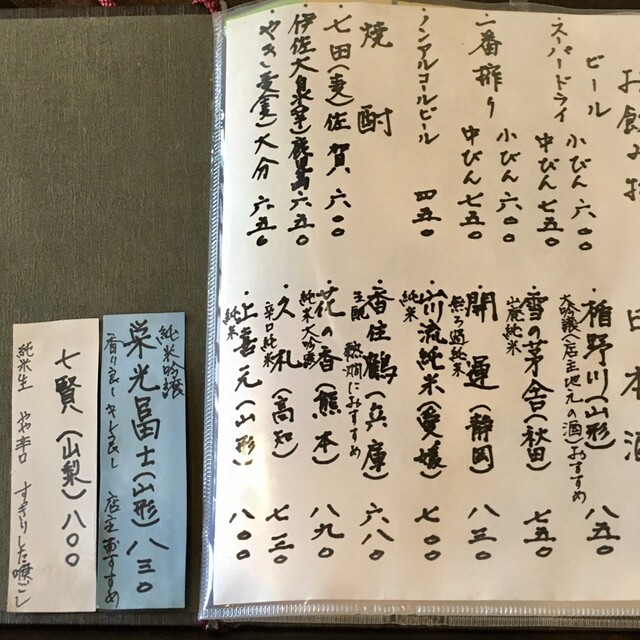 お飲み物
ビール
スーパードライ
小びん 六〇〇
中びん 七五〇
・一番搾り
小びん 六〇〇
中びん 七五〇
・ノンアルコールビール 四五〇
焼酎
・七田(麦)佐賀 六〇〇
・伊佐大泉(芋)鹿児島 六五〇
・やきし麦(麦)大分 六五〇
日本酒
・楯野川(山形) 八五〇
大吟醸(店主地元の酒)おすすめ
・雪の茅舎(秋田) 七五〇
山廃純米
・開運(静岡) 八三〇
無ろ過純米
・川流純米(愛媛) 七〇〇
純米
・香住鶴(兵庫) 六八〇
生酛 熱燗におすすめ
・花の香(熊本) 八九〇
純米大吟醸
・久礼(高知) 七三〇
辛口純米
・上喜元(山形) 八〇〇
純米
純米吟醸
栄光冨士(山形)八三〇
香り良し キレ良し 店主おすすめ
七賢(山梨)八〇〇
純米生 やや辛口 すっきりした喉ごし